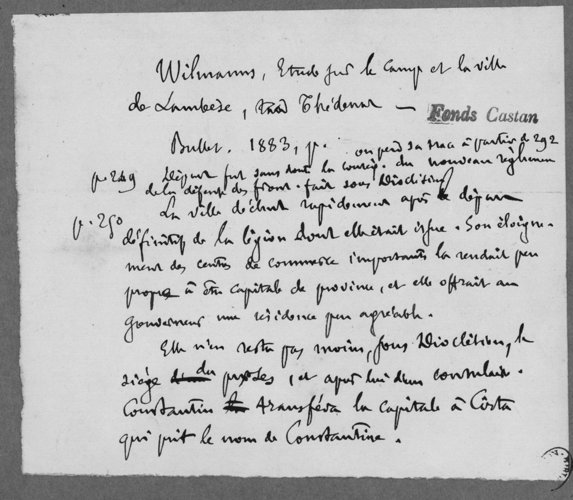 Wilmanns, Etude sur le camp et la ville
de Lambèse, trad Thédenat —
Fonds Castan
Bullet. 1883, p.
on perd sa trace à partir de 292
p. 249 Départ fut sans doute la conséq. du nouveau règlement
de la défense des front. fait sous Dioclétien
p. 250 La ville déchut rapidement après le départ
définitif de la légion dont elle était issue. Son éloigne-
ment des centres de commerce importants la rendait peu
propre à être capitale de province, et elle offrait au
gouverneur une résidence peu agréable.
Elle n'en resta pas moins, sous Dioclétien, le
siège du præses, et après lui d'un consulaire.
Constantin transféra la capitale à Cirta
qui prit le nom de Constantine.